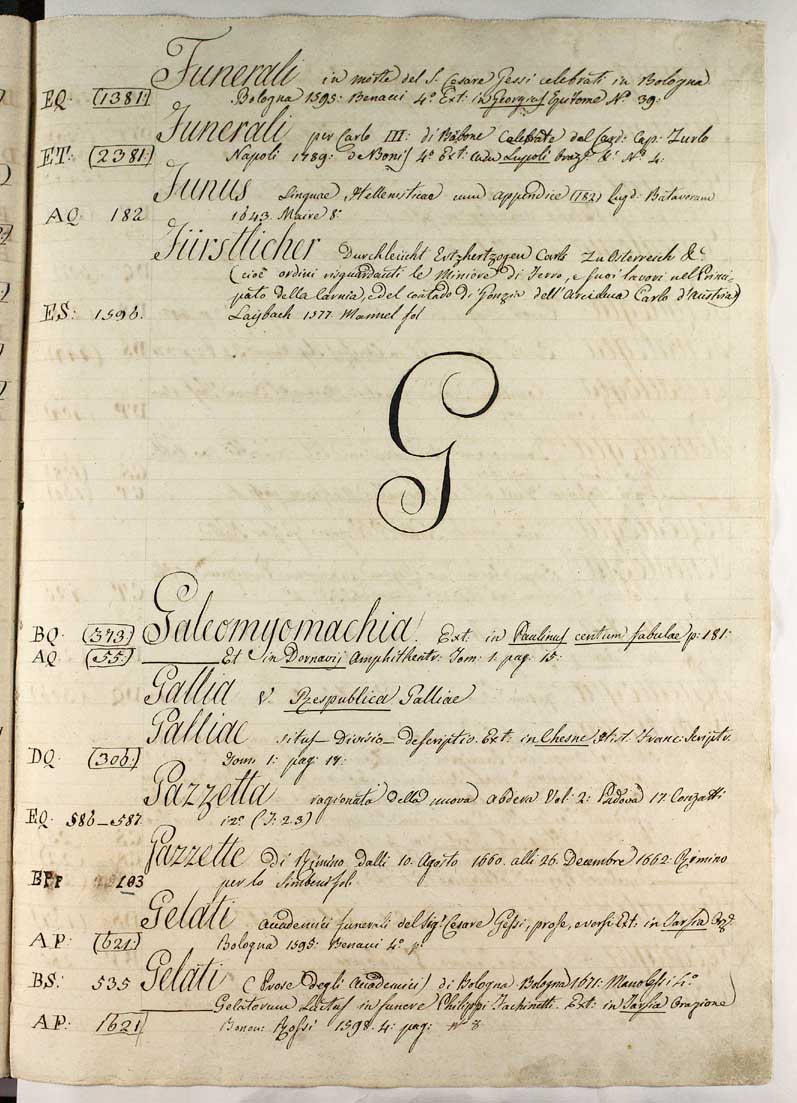 Funerali in morte del S. Cesare Gessi celebrati in Bologna
EQ. (1381) Bologna 1595: Benacci 4.° Ext: in Georgius Epitome N.° 39.
Funerali per Carlo III: di Borbone Celebrate dal Card: Cap: Zurlo
ET: (2381) Napoli 1789: De Bonis 4.° Ext: Lupoli &: N.° 4:
Funus Linguae Hellenisticae cum appendice (182) Lugd: Batavorum
AQ 182 1643. Maire 8.°
Fürstlicher Durchleücht Ertzhertzogen Carls Zu Osterreich &.
(cioè ordini risguardanti le Miniere di Ferro, e suoi lavori nel Princi-
pato della Carnia, e del contado di Gorizia dell'Arciduca Carlo d'Austria)
ES: 1596. Laybach 1577. Mannel fol
G
BQ. (373.) Galeomyomachia. Ext. in Paulinus centum fabulae p: 181:
AQ. (55.) Et in Dornavij Amphitheatr: Tom: 1. pag: 15:
Gallia V. Respublica Galliae
Galliae situs_ Divisio_ descriptio. Ext: in Chesne, Hist. Franc: Scriptr.
DQ. (306.) Tom: 1: pag: 17:
Gazzetta ragionata della nuova abdera Vol: 2: Padova 17. Conzatti
EQ. 586_587 12.° (T: 23)
Gazzette di Rimino dalli 10. Agosto 1660. alli 26. Decembre 1662. Rimino
EPP 103 per lo Simbeni fol.
Gelati Accademici funerali del Sig.r Cesare Gessi, prose, e versi Ext: in Tarsia
AP: (621:) Bologna 1595: Benacci 4.°
BS: 535 Gelati (Prose degli Accademici) di Bologna. Bologna 1671: Manolessi 4.°
Gelatorum Luctus in funere Philippi Ext. in Tarsia Orazione
AP: 1621 Bonon: Rossi 1598. 4: pag: n.° 8